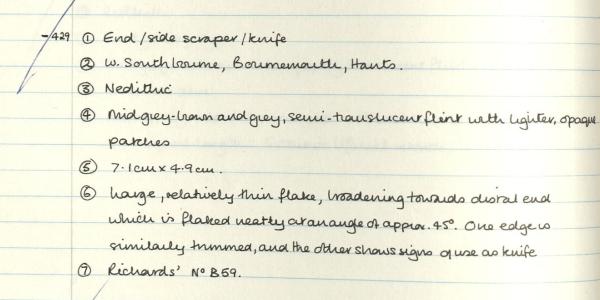 -429 ① End/side scraper/knife
② W. Southbourne, Bournemouth, Hants.
③ Neolithic
④ Mid grey-brown and grey, semi-translucent flint with lighter, opaque
patches
⑤ 7.1cm x 4.9cm.
⑥ Large, relatively thin flake, broadening towards distal end
which is flaked neatly at an angle of approx. 45°. One edge is
similarly trimmed, and the other shows signs of use as knife
⑦ Richards' No B59.